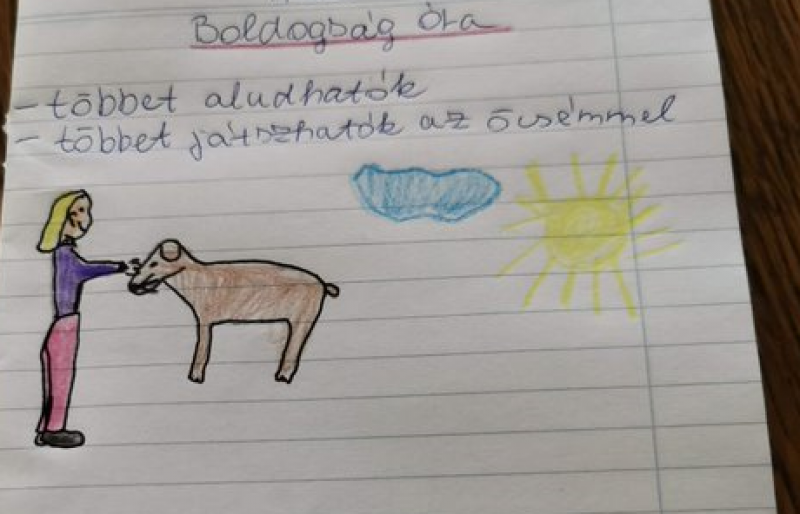 Boldogság óra
- többet aludhatók
- többet játszhatók az öcsémmel